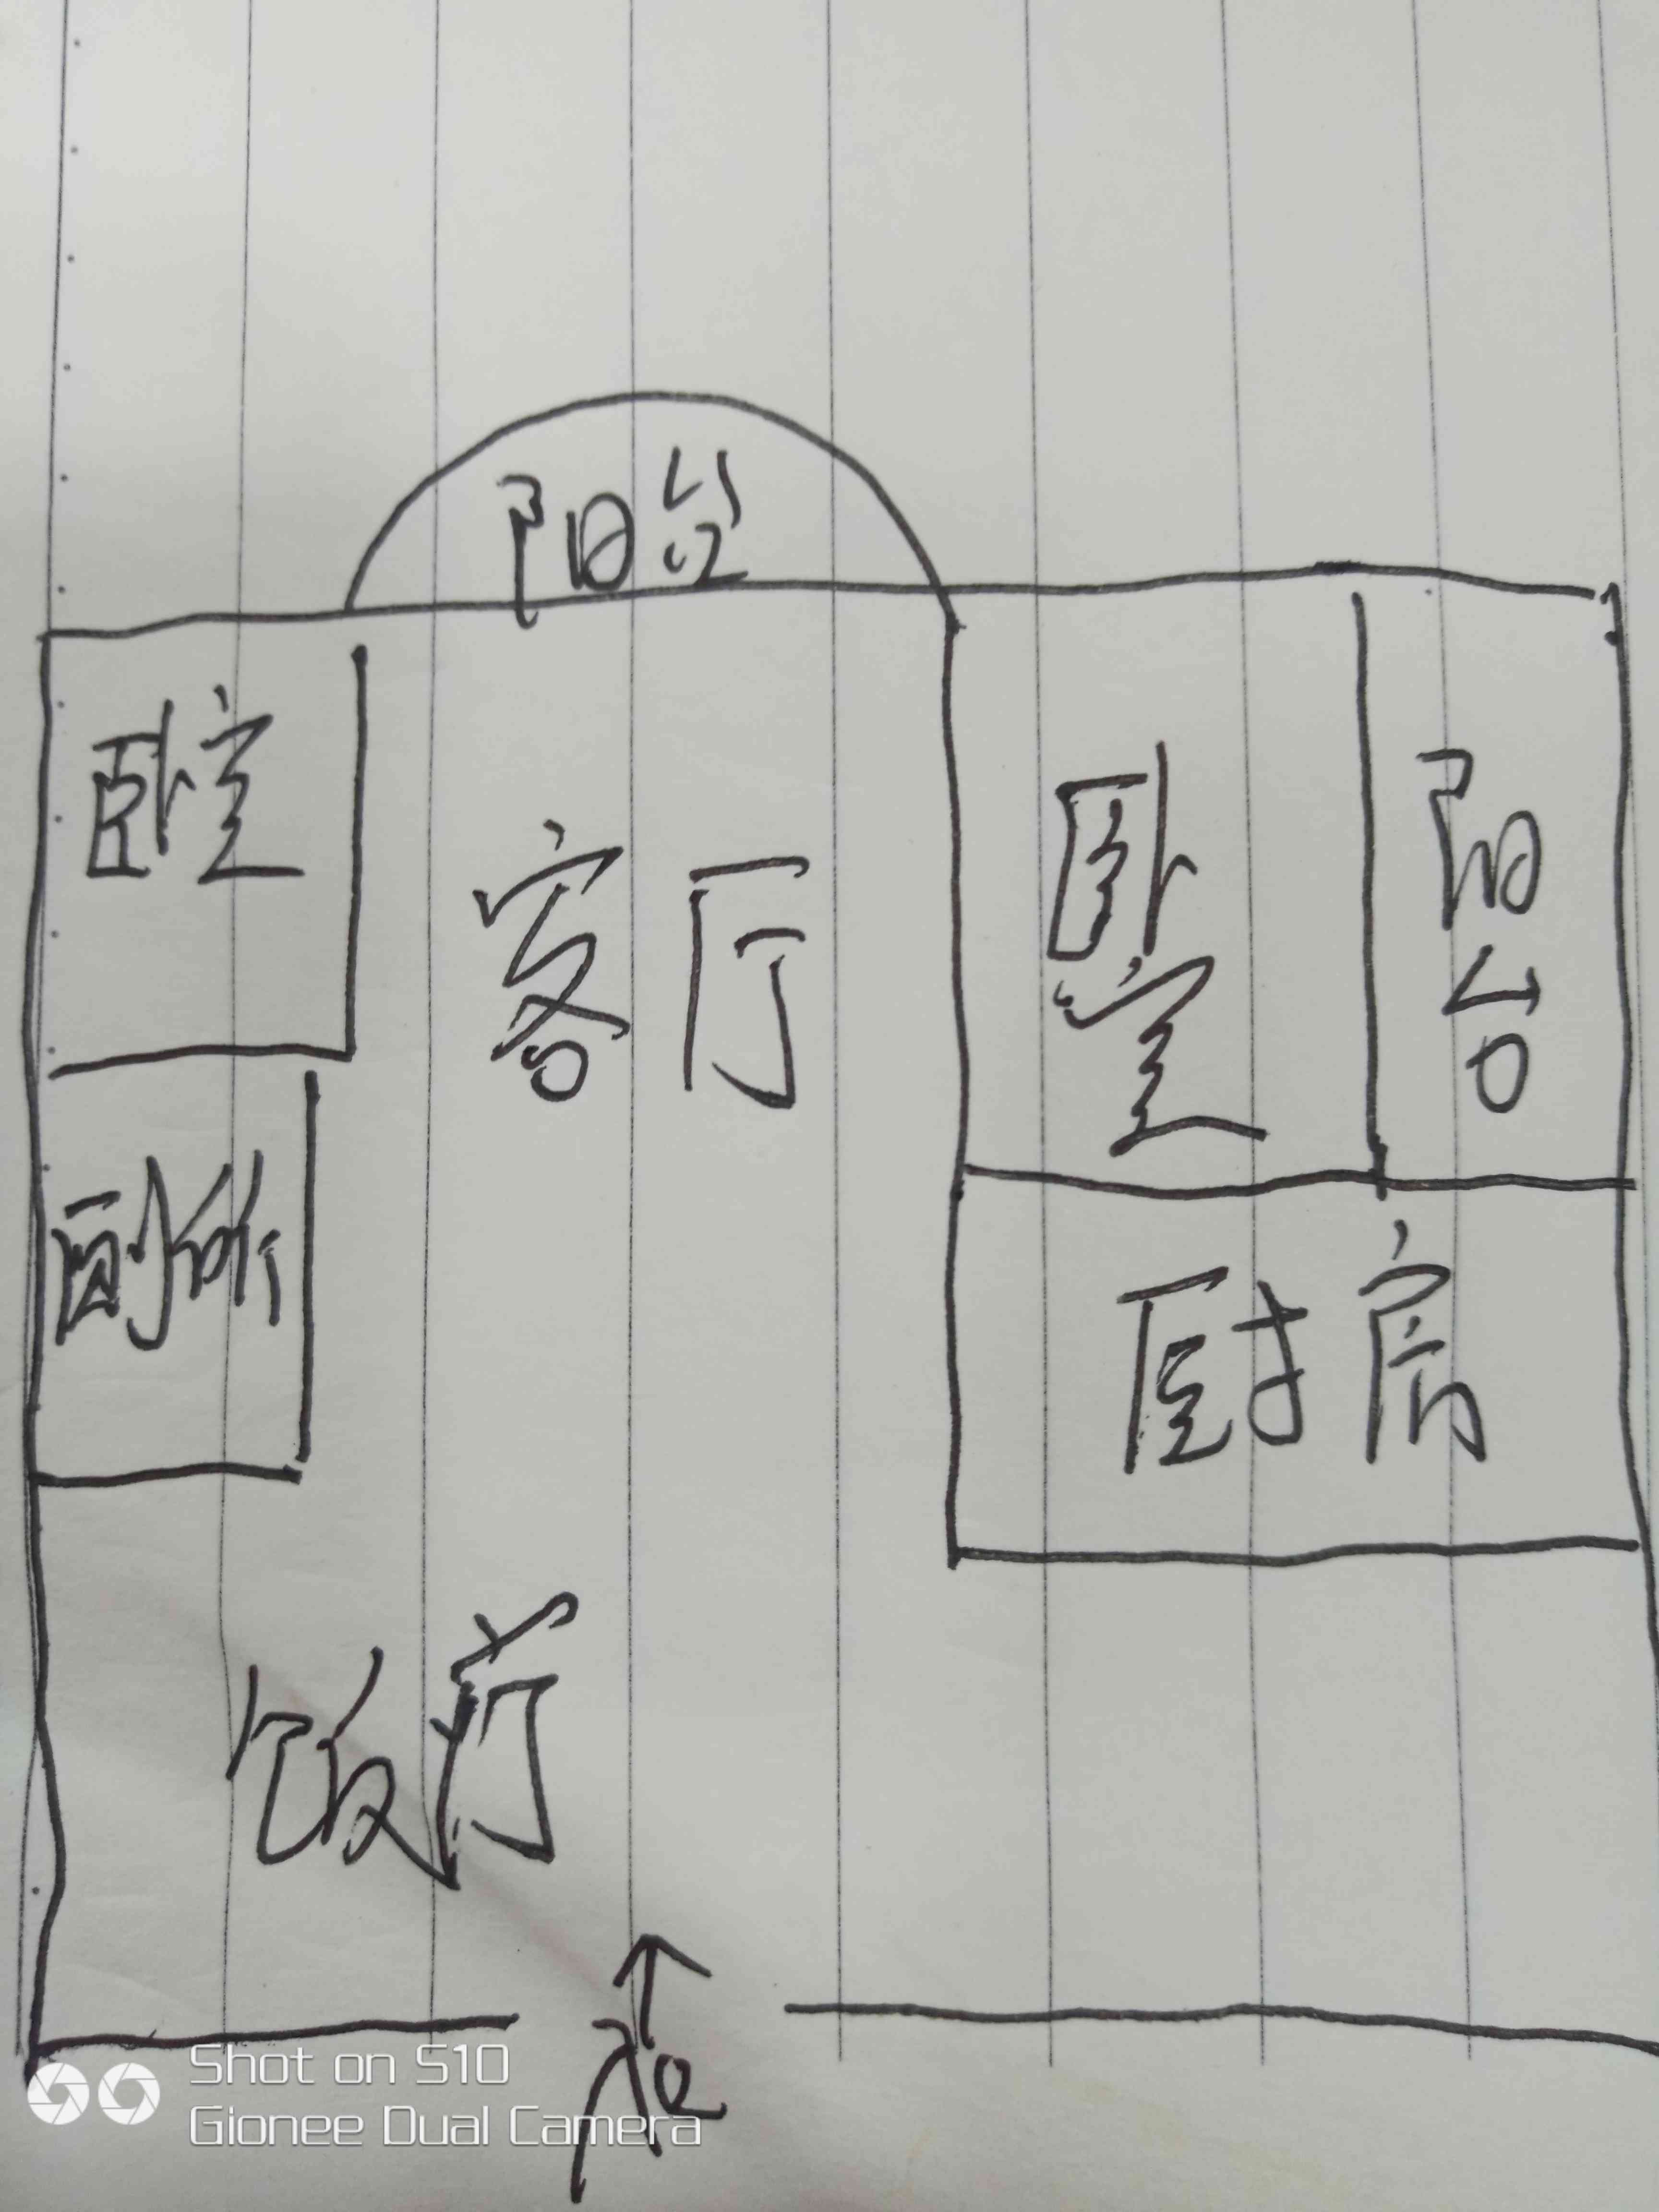 阳台
卧室
客厅
卧室
阳台
厕所
厨房
饭厅
入口
Shot on S10
Gionee Dual Camera